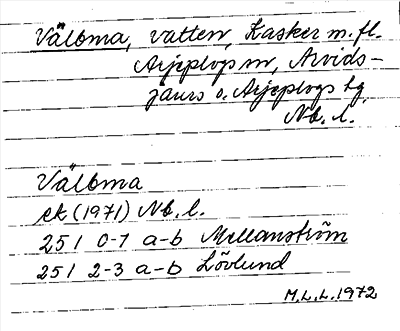 Välbma, vatten, Kasker m.fl.
Arjeplogs sn, Arvids-
jaurs o. Arjeplogs tg,
Nb. l.
Välbma
ek (1971) Nb. l.
251 0-1 a-b Mellanström
251 2-3 a-b Lövlund
M.L.L. 1972